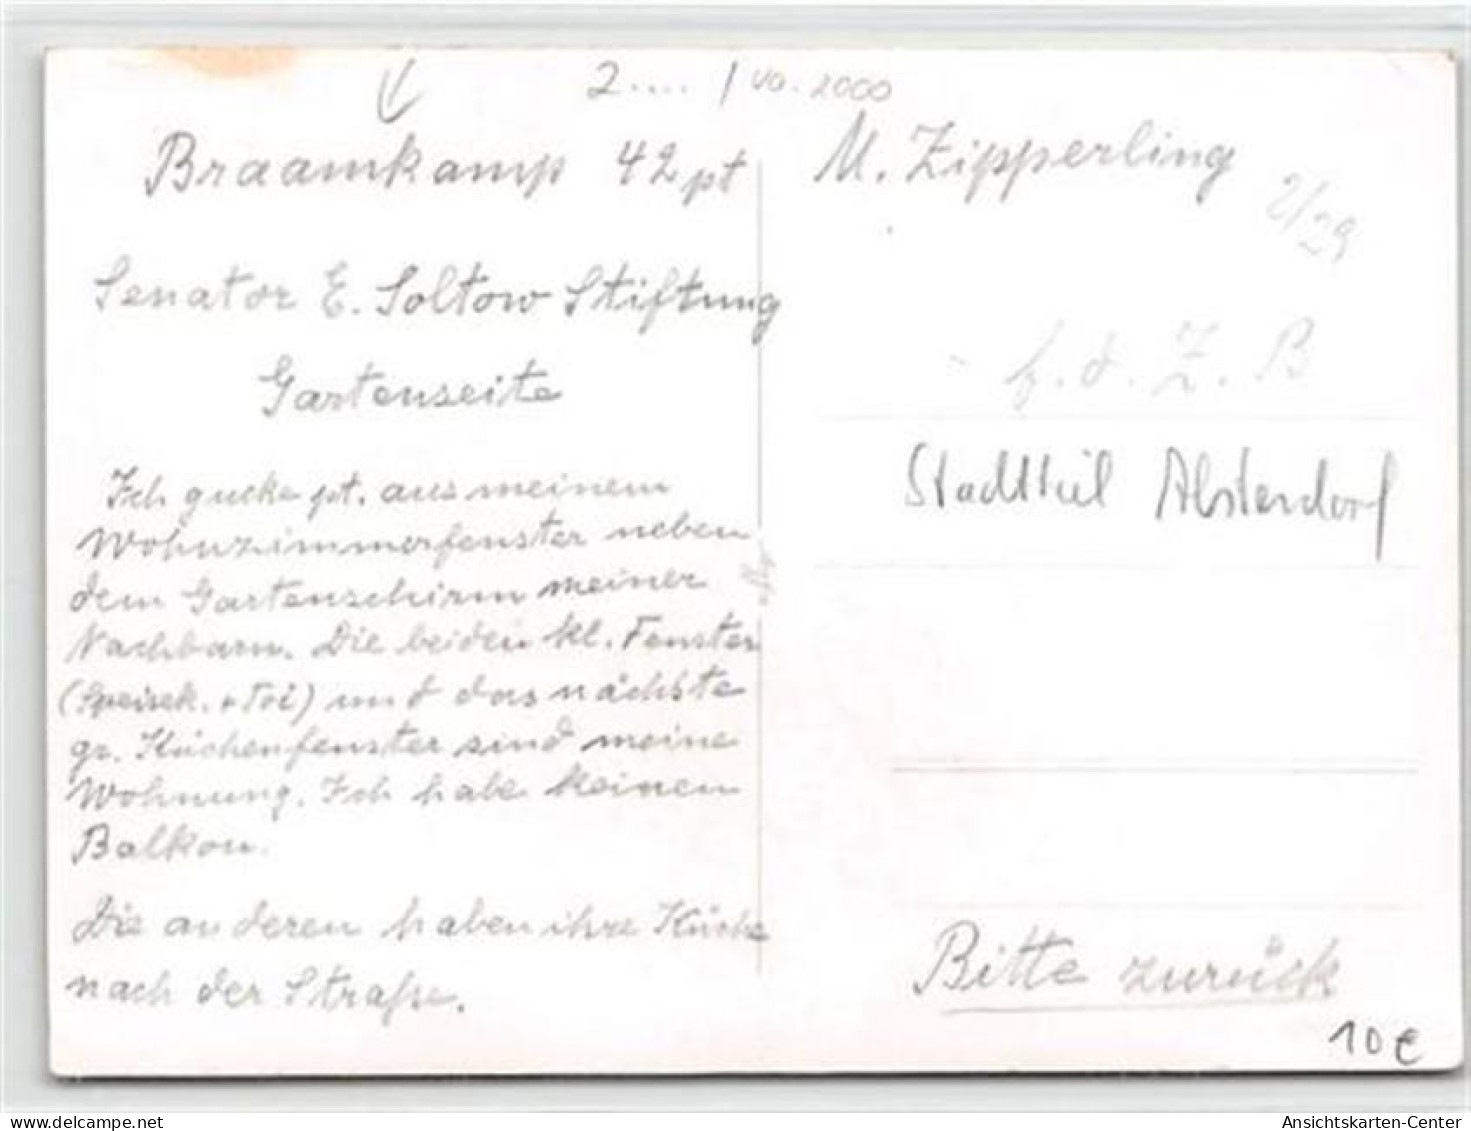 2.... / vo. 2000
Braamkamp 42 pt
Senator E. Soltow Stiftung
Gartenseite
Ich gucke pt. aus meinem
Wohnzimmerfenster neben
dem Gartenschirm meiner
Nachbarn. Die beiden kl. Fenster
(Speisek. + Toi) und das nächste
gr. Küchenfenster sind meine
Wohnung. Ich habe keinen
Balkon.
Die anderen haben ihre Küche
nach der Straße.
M. Zipperling
2/29
f. d. Z. B
Stadtteil Alsterdorf
Bitte zurück
10 €
delcampe.net
Ansichtskarten-Center